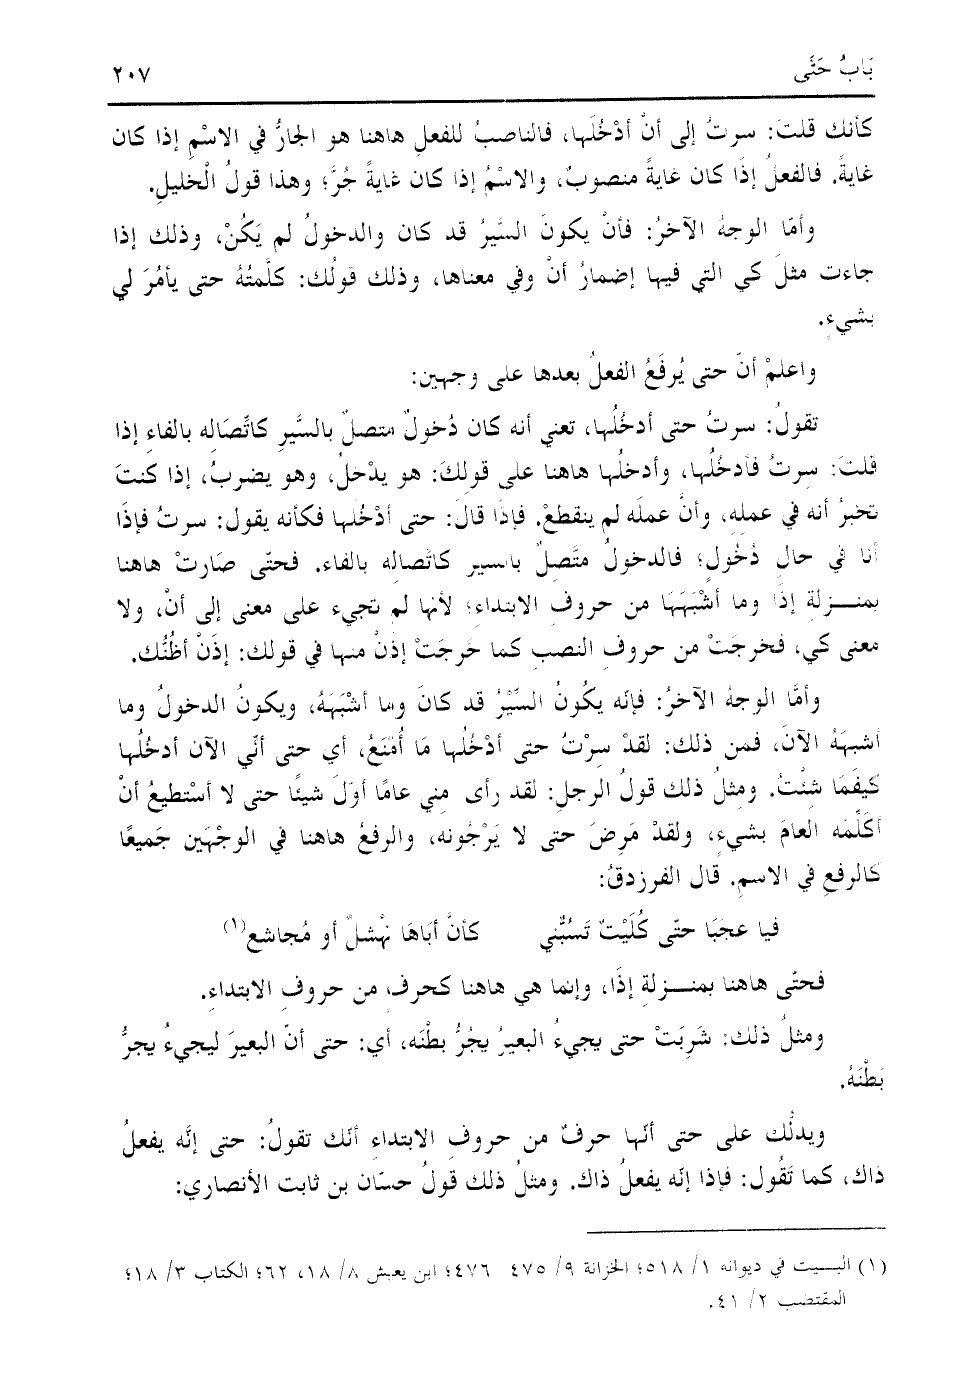 بَابُ حَتَّى
٢٠٧
كأنك قلتَ: سرتُ إلى أنْ أدْخُلَها، فالناصبُ للفعلِ هاهنا هو الجارُّ في الاسْمِ إذا كان
غايةً. فالفعلُ إذَا كان غايةً منصوبٌ، والاسْمُ إذا كان غايةً جُرَّ؛ وهذا قولُ الْخليلِ.
وأمّا الوجهُ الآخرُ: فأنْ يكونَ السَّيرُ قد كان والدخولُ لم يَكُنْ، وذلك إذا
جاءت مثلَ كي التي فيها إضمارُ أنْ وفي معناها، وذلك قولُك: كلَّمتُهُ حتى يأمُرَ لي
بشيءٍ.
واعلمْ أنّ حتى يُرفَعُ الفعلُ بعدها على وجهين:
تقولُ: سرتُ حتى أدخُلُها، تعني أنه كان دُخولٌ متصلٌ بالسَّيرِ كاتِّصَاله بالفاءِ إذا
قلتَ: سرتُ فأدخُلُها، وأدخلُها هاهنا على قولكَ: هو يدْخلُ، وهو يضربُ، إذا كنتَ
تخبرُ أنه في عملِهِ، وأنَّ عملَه لم ينقطعْ. فإذَا قالَ: حتى أدْخُلُها فكأنه يقول: سرتُ فإذَا
أنا في حالِ دُخُولٍ؛ فالدخولُ متَّصلٌ بالسير كاتّصاله بالفاء. فحتّى صَارتْ هاهنا
بمنـزلةِ إذَا وما أشْبَهَهَا من حروف الابتداءِ؛ لأنها لم تجيء على معنى إلى أنْ، ولا
معنى كي، فخرجَتْ من حروف النصب كما خَرجَتْ إذنْ منها في قولك: إذَنْ أظُنُّك.
وأمَّا الوجهُ الآخرُ: فإنّه يكُونُ السَّيْرُ قد كانَ وما أشْبَهَهُ، ويكونُ الدخولُ وما
أشبهَهُ الآنَ، فمن ذلك: لقدْ سِرْتُ حتى أدْخُلُها مَا أُمْنَعُ، أي حتى أنّي الآن أدخُلُها
كيفَمَا شئْتُ. ومِثلُ ذلك قولُ الرجلِ: لقد رأى مني عامًا أوّلَ شيئًا حتى لا أسْتطيعُ أنْ
أكلِّمَه العامَ بشيءٍ، ولقدْ مَرِضَ حتى لا يَرْجُونه، والرفعُ هاهنا في الوجْهَين جَميعًا
كالرفعِ في الاسمِ. قال الفرزدقُ:
فيا عجبَا حتّى كُلَيْبٌ تَسُبُّني كأنَّ أبَاهَا نَهْشلٌ أو مُجاشع(١)
فحتّى هاهنا بمنـزلةِ إذَا، وإنما هي هاهنا كحرفٍ من حروفِ الابتداءِ.
ومثلُ ذلك: شَرِبَتْ حتى يجيءُ البعيرُ يجُرُّ بطْنَه، أي: حتى أنّ البعيرَ ليجيءُ يجرُّ
بَطْنَهُ.
ويدلُّك على حتى أنّها حرفٌ من حروفِ الابتداءِ أنّك تقولُ: حتى إنَّه يفعلُ
ذاك، كما تَقُول: فإذا إنّه يفعلُ ذاك. ومثلُ ذلك قولُ حسّان بن ثابت الأنصاري:
(١) البـيت في ديوانه ١/ ٥١٨؛ الخزانة ٩/ ٤٧٥ ٤٧٦؛ ابن يعيش ٨/ ١٨، ٦٢؛ الكتاب ٣/ ١٨؛
المقتضب ٢/ ٤١.